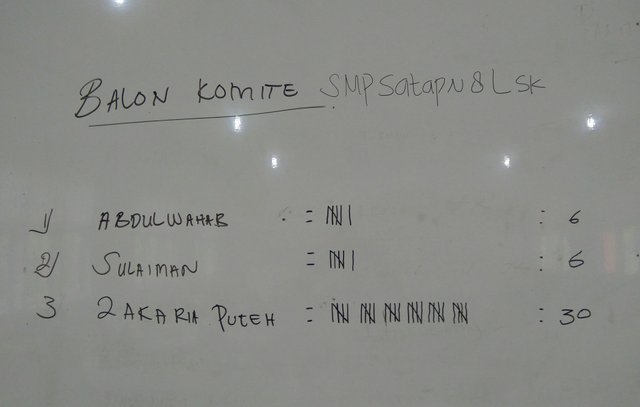 BALON KOMITE SMPSatapN8Lsk
1) ABDULWAHAB = 𝍸| : 6
2) SULAIMAN = 𝍸| : 6
3 ZAKARIA PUTEH = 𝍸 𝍸 𝍸 𝍸 𝍸 𝍸 : 30